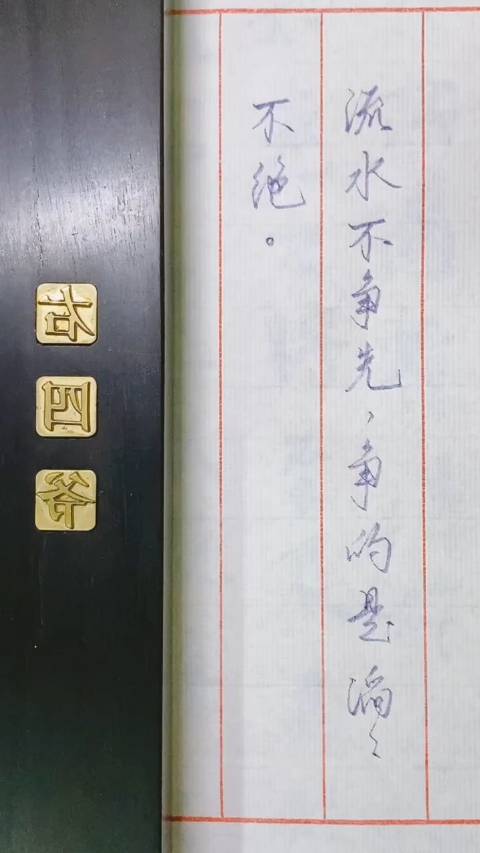 流水不争先，争的是滔々
不绝。
右四爷